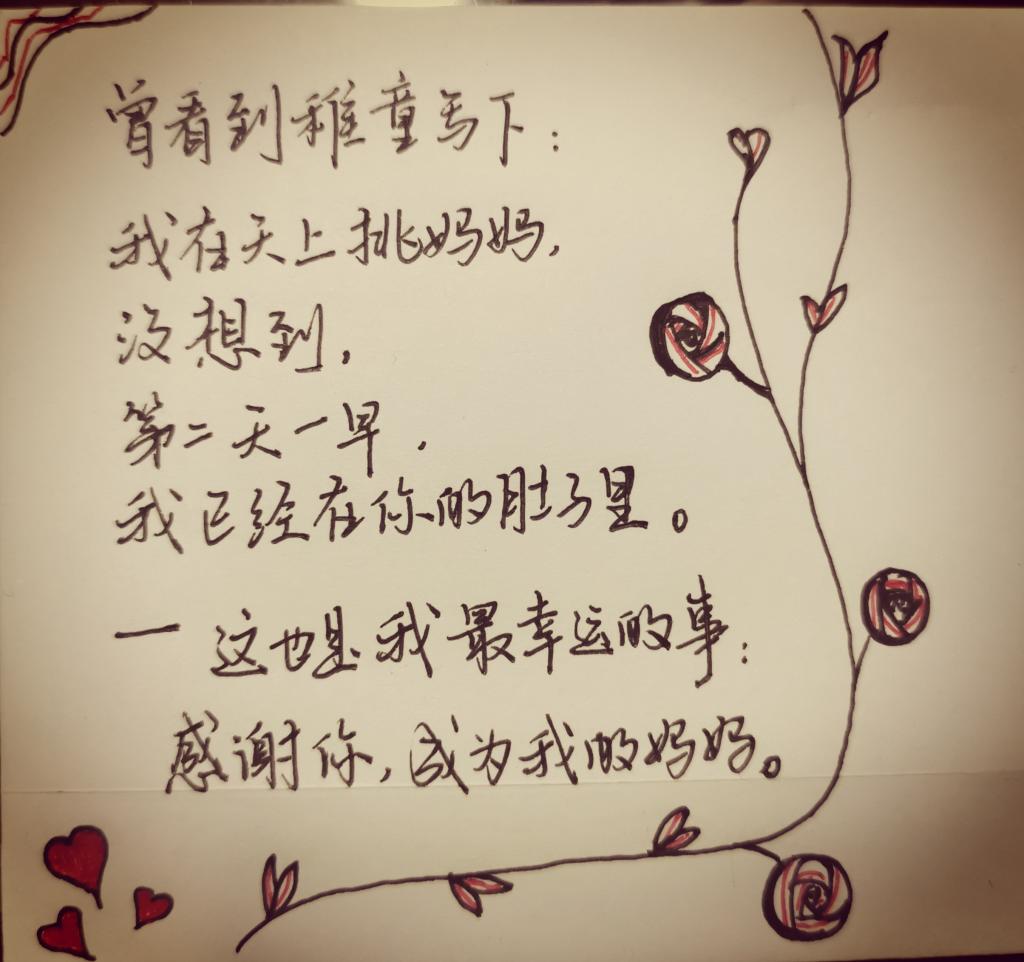 曾看到稚童写下：
我在天上挑妈妈，
没想到，
第二天一早，
我已经在你的肚子里。
一 这也是我最幸运的事：
感谢你，成为我的妈妈。